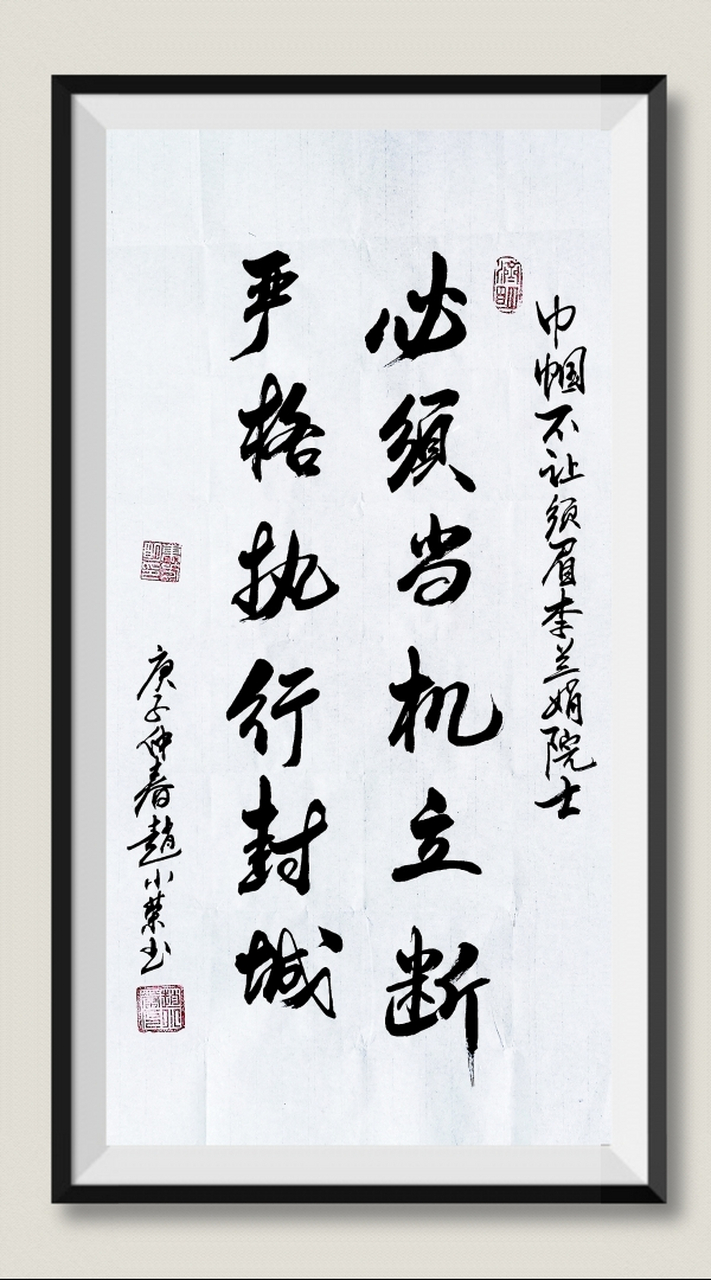 巾帼不让须眉李兰娟院士
必须当机立断
严格执行封城
庚子仲春赵小荣书